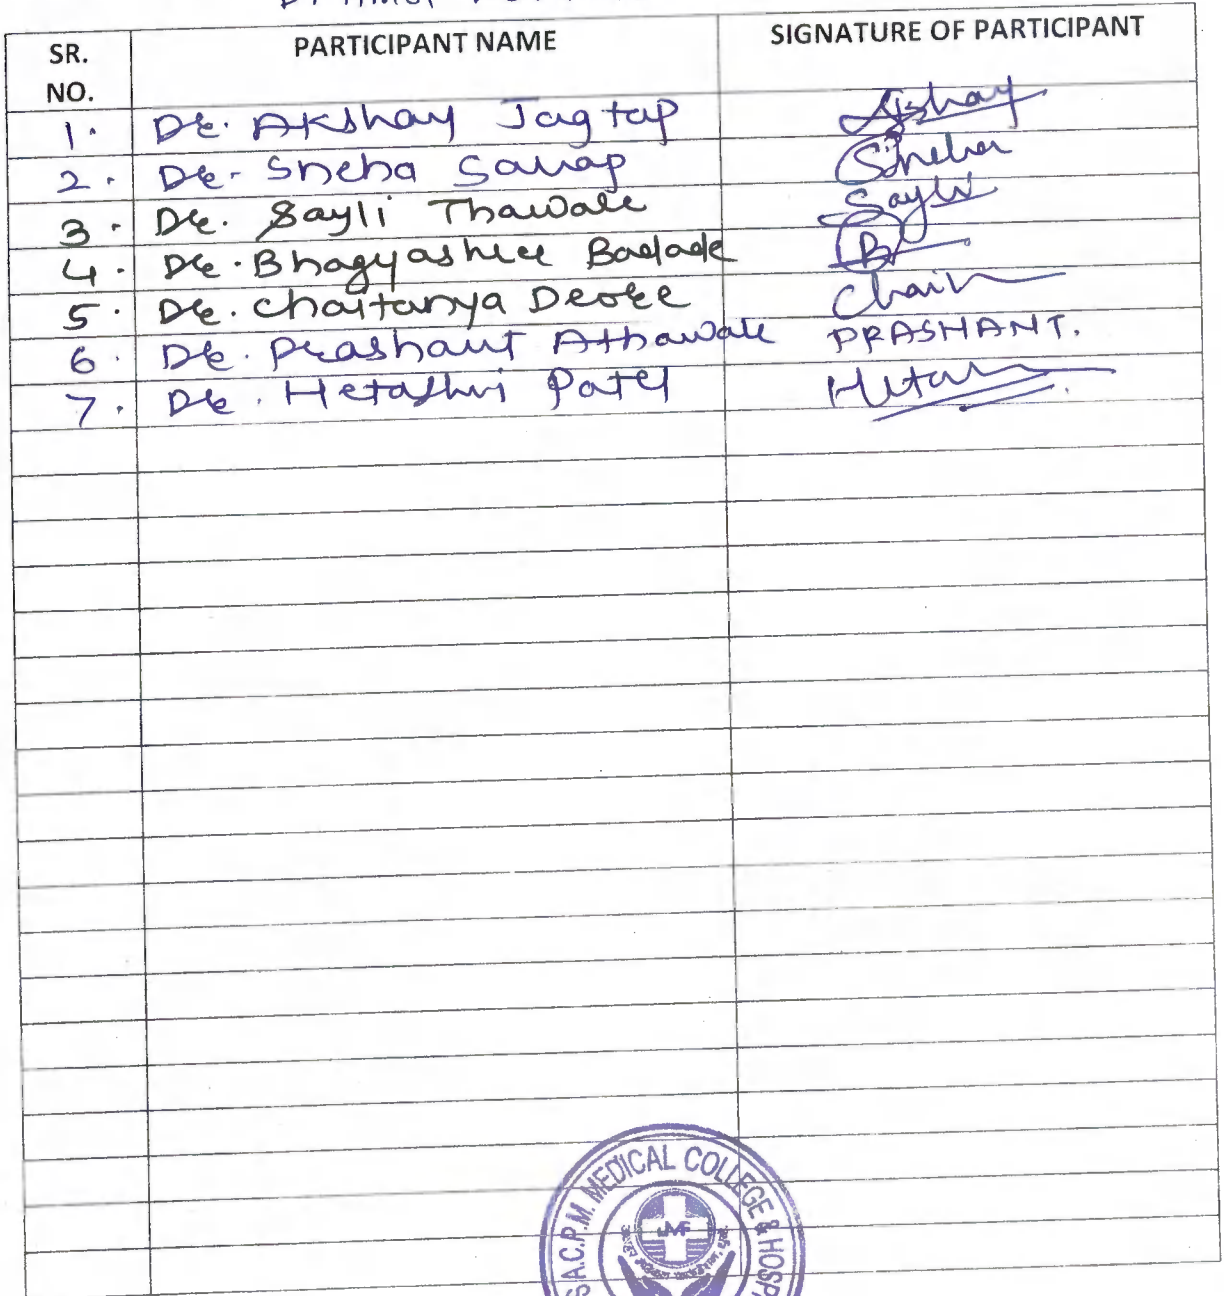 SR. NO. PARTICIPANT NAME SIGNATURE OF PARTICIPANT
1. Dr. Akshay Jagtap Akshay
2. Dr. Sneha Sanap Sneha
3. Dr. Sayli Thawale Sayli
4. Dr. Bhagyashree Badade B
5. Dr. Chaitanya Deore
6. Dr. Prashant Athawale PRASHANT.
7. Dr. Hetashri Patel
A.C.P.M. MEDICAL COLLEGE & HOSP
JMF